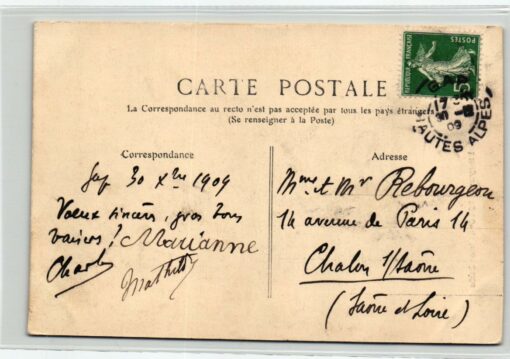 CARTE POSTALE
La Correspondance au recto n'est pas acceptée par tous les pays étrangers
(Se renseigner à la Poste)
Correspondance
Gap 30 Xbre 1909
Voeux sincères, gros bons
baisers! Marianne
Charles
Mathilde
Adresse
Mme et Mr Rebourgeon
14 avenue de Paris 14
Chalon s/Saône
(Saône et Loire)
REPUBLIQUE FRANÇAISE
POSTES
5c
17
09
HAUTES ALPES